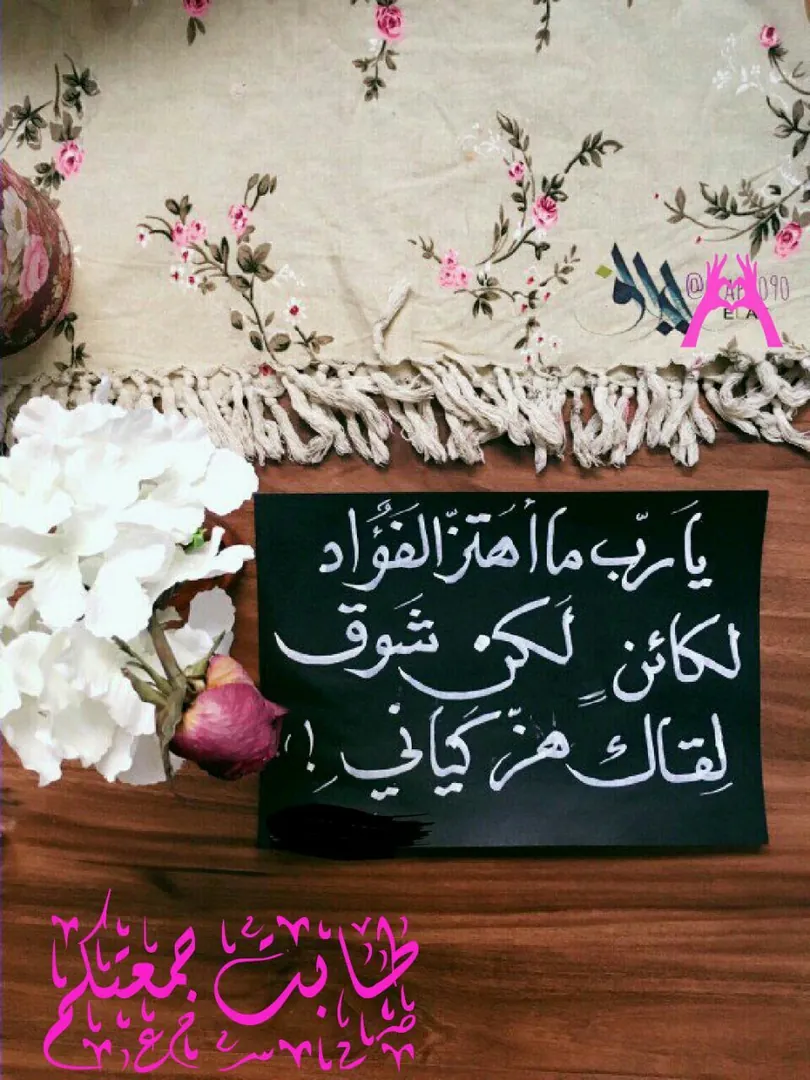 يَا رَبّ ما أهْتزّ الفَؤُاد
لكائنٍ لَكن شَوق
لِقاك هزّ كَياني !
طابت جمعتكم